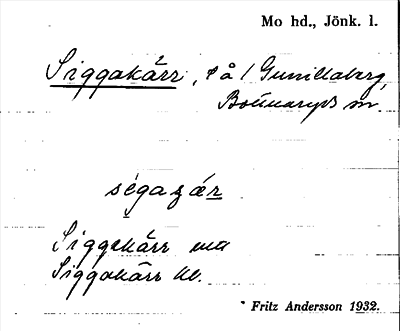 Mo hd., Jönk. l.
Siggakärr, på / Gunillaberg,
Bottnaryds sn.
Siggakärr ma
Siggakärr kl.
Fritz Andersson 1932.